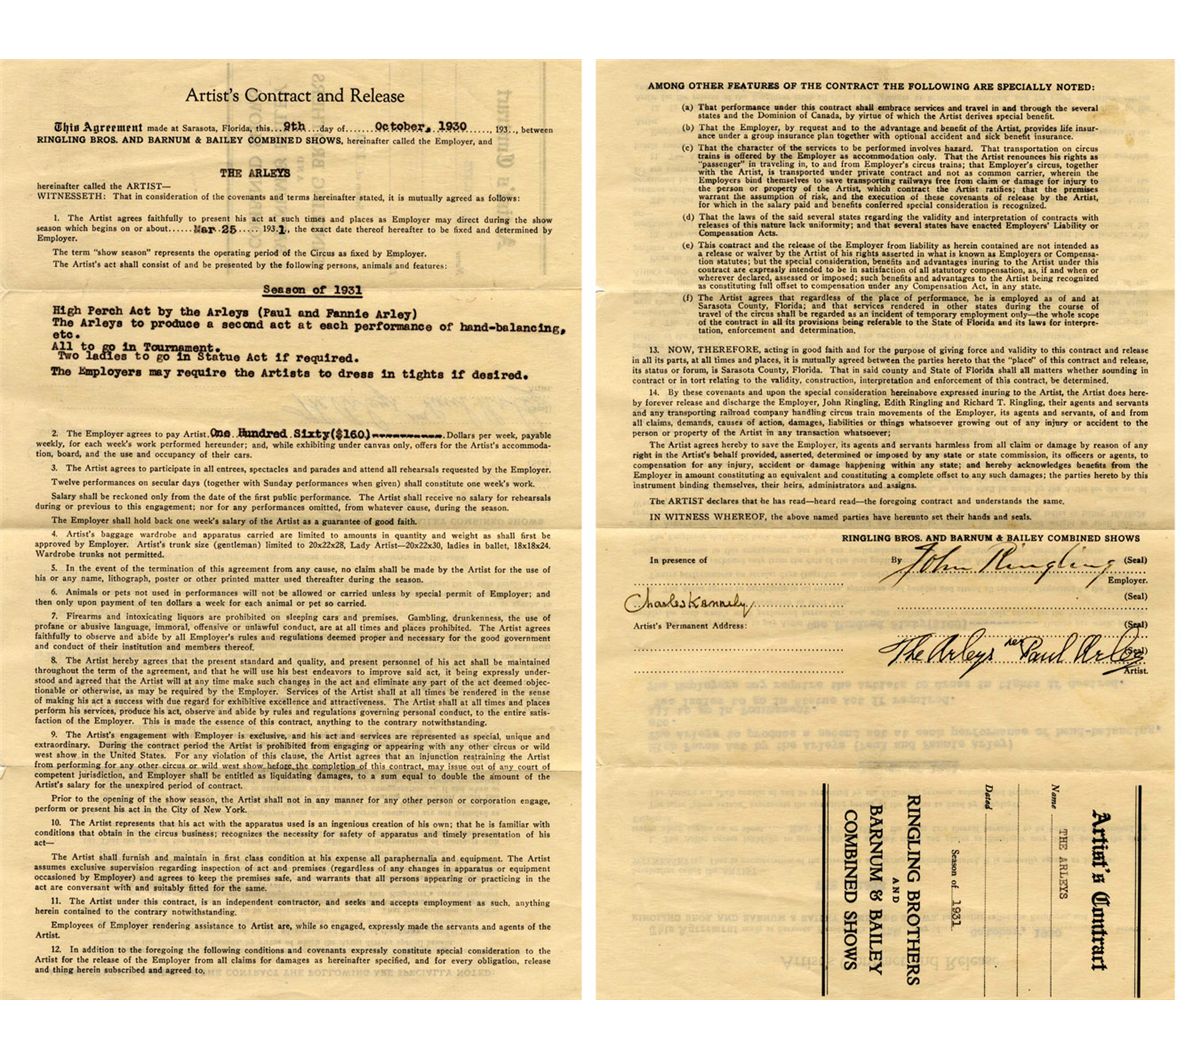 Artist's Contract and Release
This Agreement made at Sarasota, Florida, this...9th...day of.......October, 1930......, 193.., between
RINGLING BROS. AND BARNUM & BAILEY COMBINED SHOWS, hereinafter called the Employer, and
THE ARLEYS
hereinafter called the ARTIST—
WITNESSETH: That in consideration of the covenants and terms hereinafter stated, it is mutually agreed as follows:
1. The Artist agrees faithfully to present his act at such times and places as Employer may direct during the show
season which begins on or about......Mar 25..... 1931., the exact date thereof hereafter to be fixed and determined by
Employer.
The term "show season" represents the operating period of the Circus as fixed by Employer.
The Artist's act shall consist of and be presented by the following persons, animals and features:
Season of 1931
High Perch Act by the Arleys (Paul and Fannie Arley)
The Arleys to produce a second act at each performance of hand-balancing,
etc.
All to go in Tournament.
Two ladies to go in Statue Act if required.
The Employers may require the Artists to dress in tights if desired.
2. The Employer agrees to pay Artist.One Hundred Sixty($160)----------.Dollars per week, payable
weekly, for each week's work performed hereunder; and, while exhibiting under canvas only, offers for the Artist's accommoda-
tion, board, and the use and occupancy of their cars.
3. The Artist agrees to participate in all entrees, spectacles and parades and attend all rehearsals requested by the Employer.
Twelve performances on secular days (together with Sunday performances when given) shall constitute one week's work.
Salary shall be reckoned only from the date of the first public performance. The Artist shall receive no salary for rehearsals
during or previous to this engagement; nor for any performances omitted, from whatever cause, during the season.
The Employer shall hold back one week's salary of the Artist as a guarantee of good faith.
4. Artist's baggage wardrobe and apparatus carried are limited to amounts in quantity and weight as shall first be
approved by Employer. Artist's trunk size (gentleman) limited to 20x22x28, Lady Artist—20x22x30, ladies in ballet, 18x18x24.
Wardrobe trunks not permitted.
5. In the event of the termination of this agreement from any cause, no claim shall be made by the Artist for the use of
his or any name, lithograph, poster or other printed matter used thereafter during the season.
6. Animals or pets not used in performances will not be allowed or carried unless by special permit of Employer; and
then only upon payment of ten dollars a week for each animal or pet so carried.
7. Firearms and intoxicating liquors are prohibited on sleeping cars and premises. Gambling, drunkenness, the use of
profane or abusive language, immoral, offensive or unlawful conduct, are at all times and places prohibited. The Artist agrees
faithfully to observe and abide by all Employer's rules and regulations deemed proper and necessary for the good government
and conduct of their institution and members thereof.
8. The Artist hereby agrees that the present standard and quality, and present personnel of his act shall be maintained
throughout the term of the agreement, and that he will use his best endeavors to improve said act, it being expressly under-
stood and agreed that the Artist will at any time make such changes in the act and eliminate any part of the act deemed objec-
tionable or otherwise, as may be required by the Employer. Services of the Artist shall at all times be rendered in the sense
of making his act a success with due regard for exhibitive excellence and attractiveness. The Artist shall at all times and places
perform his services, produce his act, observe and abide by rules and regulations governing personal conduct, to the entire satis-
faction of the Employer. This is made the essence of this contract, anything to the contrary notwithstanding.
9. The Artist's engagement with Employer is exclusive, and his act and services are represented as special, unique and
extraordinary. During the contract period the Artist is prohibited from engaging or appearing with any other circus or wild
west show in the United States. For any violation of this clause, the Artist agrees that an injunction restraining the Artist
from performing for any other circus or wild west show before the completion of this contract, may issue out of any court of
competent jurisdiction, and Employer shall be entitled as liquidating damages, to a sum equal to double the amount of the
Artist's salary for the unexpired period of contract.
Prior to the opening of the show season, the Artist shall not in any manner for any other person or corporation engage,
perform or present his act in the City of New York.
10. The Artist represents that his act with the apparatus used is an ingenious creation of his own; that he is familiar with
conditions that obtain in the circus business; recognizes the necessity for safety of apparatus and timely presentation of his
act—
The Artist shall furnish and maintain in first class condition at his expense all paraphernalia and equipment. The Artist
assumes exclusive supervision regarding inspection of act and premises (regardless of any changes in apparatus or equipment
occasioned by Employer) and agrees to keep the premises safe, and warrants that all persons appearing or practicing in the
act are conversant with and suitably fitted for the same.
11. The Artist under this contract, is an independent contractor, and seeks and accepts employment as such, anything
herein contained to the contrary notwithstanding.
Employees of Employer rendering assistance to Artist are, while so engaged, expressly made the servants and agents of the
Artist.
12. In addition to the foregoing the following conditions and covenants expressly constitute special consideration to the
Artist for the release of the Employer from all claims for damages as hereinafter specified, and for every obligation, release
and thing herein subscribed and agreed to,
AMONG OTHER FEATURES OF THE CONTRACT THE FOLLOWING ARE SPECIALLY NOTED:
(a) That performance under this contract shall embrace services and travel in and through the several
states and the Dominion of Canada, by virtue of which the Artist derives special benefit.
(b) That the Employer, by request and to the advantage and benefit of the Artist, provides life insur-
ance under a group insurance plan together with optional accident and sick benefit insurance.
(c) That the character of the services to be performed involves hazard. That transportation on circus
trains is offered by the Employer as accommodation only. That the Artist renounces his rights as
"passenger" in traveling in, to and from Employer's circus trains; that Employer's circus, together
with the Artist, is transported under private contract and not as common carrier, wherein the
Employers bind themselves to save transporting railways free from claim or damage for injury to
the person or property of the Artist, which contract the Artist ratifies; that the premises
warrant the assumption of risk, and the execution of these covenants of release by the Artist,
for which in the salary paid and benefits conferred special consideration is recognized.
(d) That the laws of the said several states regarding the validity and interpretation of contracts with
releases of this nature lack uniformity; and that several states have enacted Employers' Liability or
Compensation Acts.
(e) This contract and the release of the Employer from liability as herein contained are not intended as
a release or waiver by the Artist of his rights asserted in what is known as Employers or Compensa-
tion statutes; but the special consideration, benefits and advantages inuring to the Artist under this
contract are expressly intended to be in satisfaction of all statutory compensation, as, if and when or
wherever declared, assessed or imposed; such benefits and advantages to the Artist being recognized
as constituting full offset to compensation under any Compensation Act, in any state.
(f) The Artist agrees that regardless of the place of performance, he is employed as of and at
Sarasota County, Florida; and that services rendered in other states during the course of
travel of the circus shall be regarded as an incident of temporary employment only—the whole scope
of the contract in all its provisions being referable to the State of Florida and its laws for interpre-
tation, enforcement and determination.
13. NOW, THEREFORE, acting in good faith and for the purpose of giving force and validity to this contract and release
in all its parts, at all times and places, it is mutually agreed between the parties hereto that the "place" of this contract and release,
its status or forum, is Sarasota County, Florida. That in said county and State of Florida shall all matters whether sounding in
contract or in tort relating to the validity, construction, interpretation and enforcement of this contract, be determined.
14. By these covenants and upon the special consideration hereinabove expressed inuring to the Artist, the Artist does here-
by forever release and discharge the Employer, John Ringling, Edith Ringling and Richard T. Ringling, their agents and servants
and any transporting railroad company handling circus train movements of the Employer, its agents and servants, of and from
all claims, demands, causes of action, damages, liabilities or things whatsoever growing out of any injury or accident to the
person or property of the Artist in any transaction whatsoever;
The Artist agrees hereby to save the Employer, its agents and servants harmless from all claim or damage by reason of any
right in the Artist's behalf provided, asserted, determined or imposed by any state or state commission, its officers or agents, to
compensation for any injury, accident or damage happening within any state; and hereby acknowledges benefits from the
Employer in amount constituting an equivalent and constituting a complete offset to any such damages; the parties hereto by this
instrument binding themselves, their heirs, administrators and assigns.
The ARTIST declares that he has read—heard read—the foregoing contract and understands the same.
IN WITNESS WHEREOF, the above named parties have hereunto set their hands and seals.
RINGLING BROS. AND BARNUM & BAILEY COMBINED SHOWS
In presence of
By John Ringling (Seal)
Employer.
Charles Kannely (Seal)
Artist's Permanent Address: (Seal)
The Arleys per Paul Arley (Seal)
Artist.
Artist's Contract
Name THE ARLEYS
Dated
Season of 1931
RINGLING BROTHERS
AND
BARNUM & BAILEY
COMBINED SHOWS